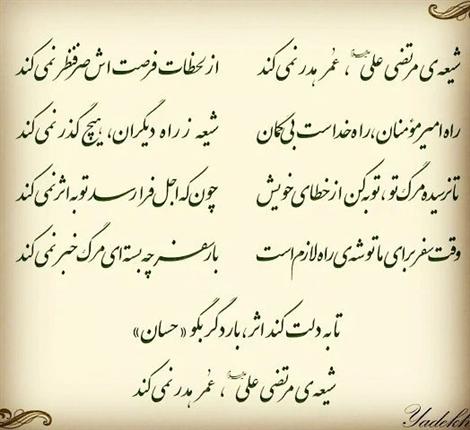 شیعه ی مرتضی علی علیه السلام، عُمر هدر نمی کند از لحظات فرصت اش صرفنظر نمی کند
راه امیر مؤمنان، راه خداست بی گمان شیعه ز راه دیگران، هیچ گذر نمی کند
تا نرسیده مرگ تو، توبه کن از خطای خویش چون که اجل فرا رسد توبه اثر نمی کند
وقت سفر برای ما توشه ی راه لازم است بار سفر چه بسته ای مرگ خبر نمی کند
تا به دلت کند اثر، بار دگر بگو «حسان»
شیعه ی مرتضی علی علیه السلام، عُمر هدر نمی کند